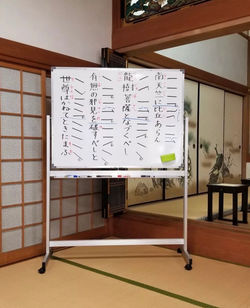 南天竺に比丘あらん
龍樹菩薩となづくべし
有無の邪見を破すべしと
世尊はかねてときたまふ